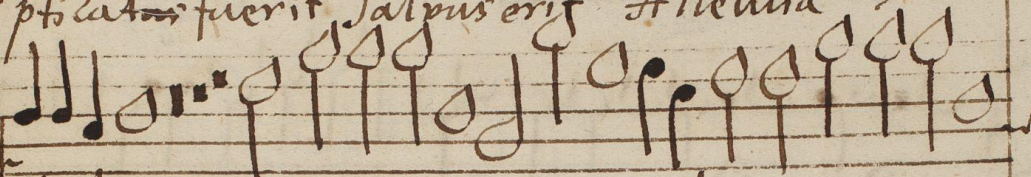 ptizatus fuerit salvus erit Alleluia